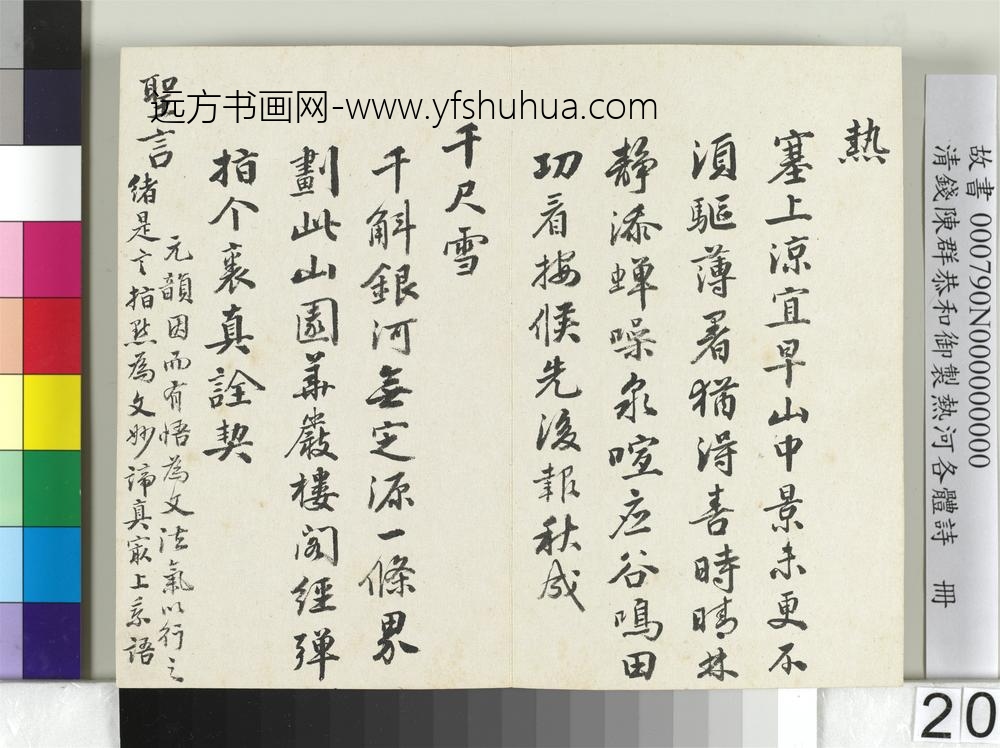 熱
塞上涼宜早山中景未更不
須驅薄暑猶得喜時晴林
靜添蟬噪泉喧應谷鳴田
功看按候先後報秋成
千尺雪
千斛銀河無定源一條界
劃此山園華嚴樓閣經彈
指个裏真詮契
元韻因而有悟為文法氣以行之
緒是言指點為文妙諦真寂上乘語
聖言
远方书画网-www.yfshuhua.com
故書 000790N000000000
清錢陳群恭和御製熱河各體詩 冊
20